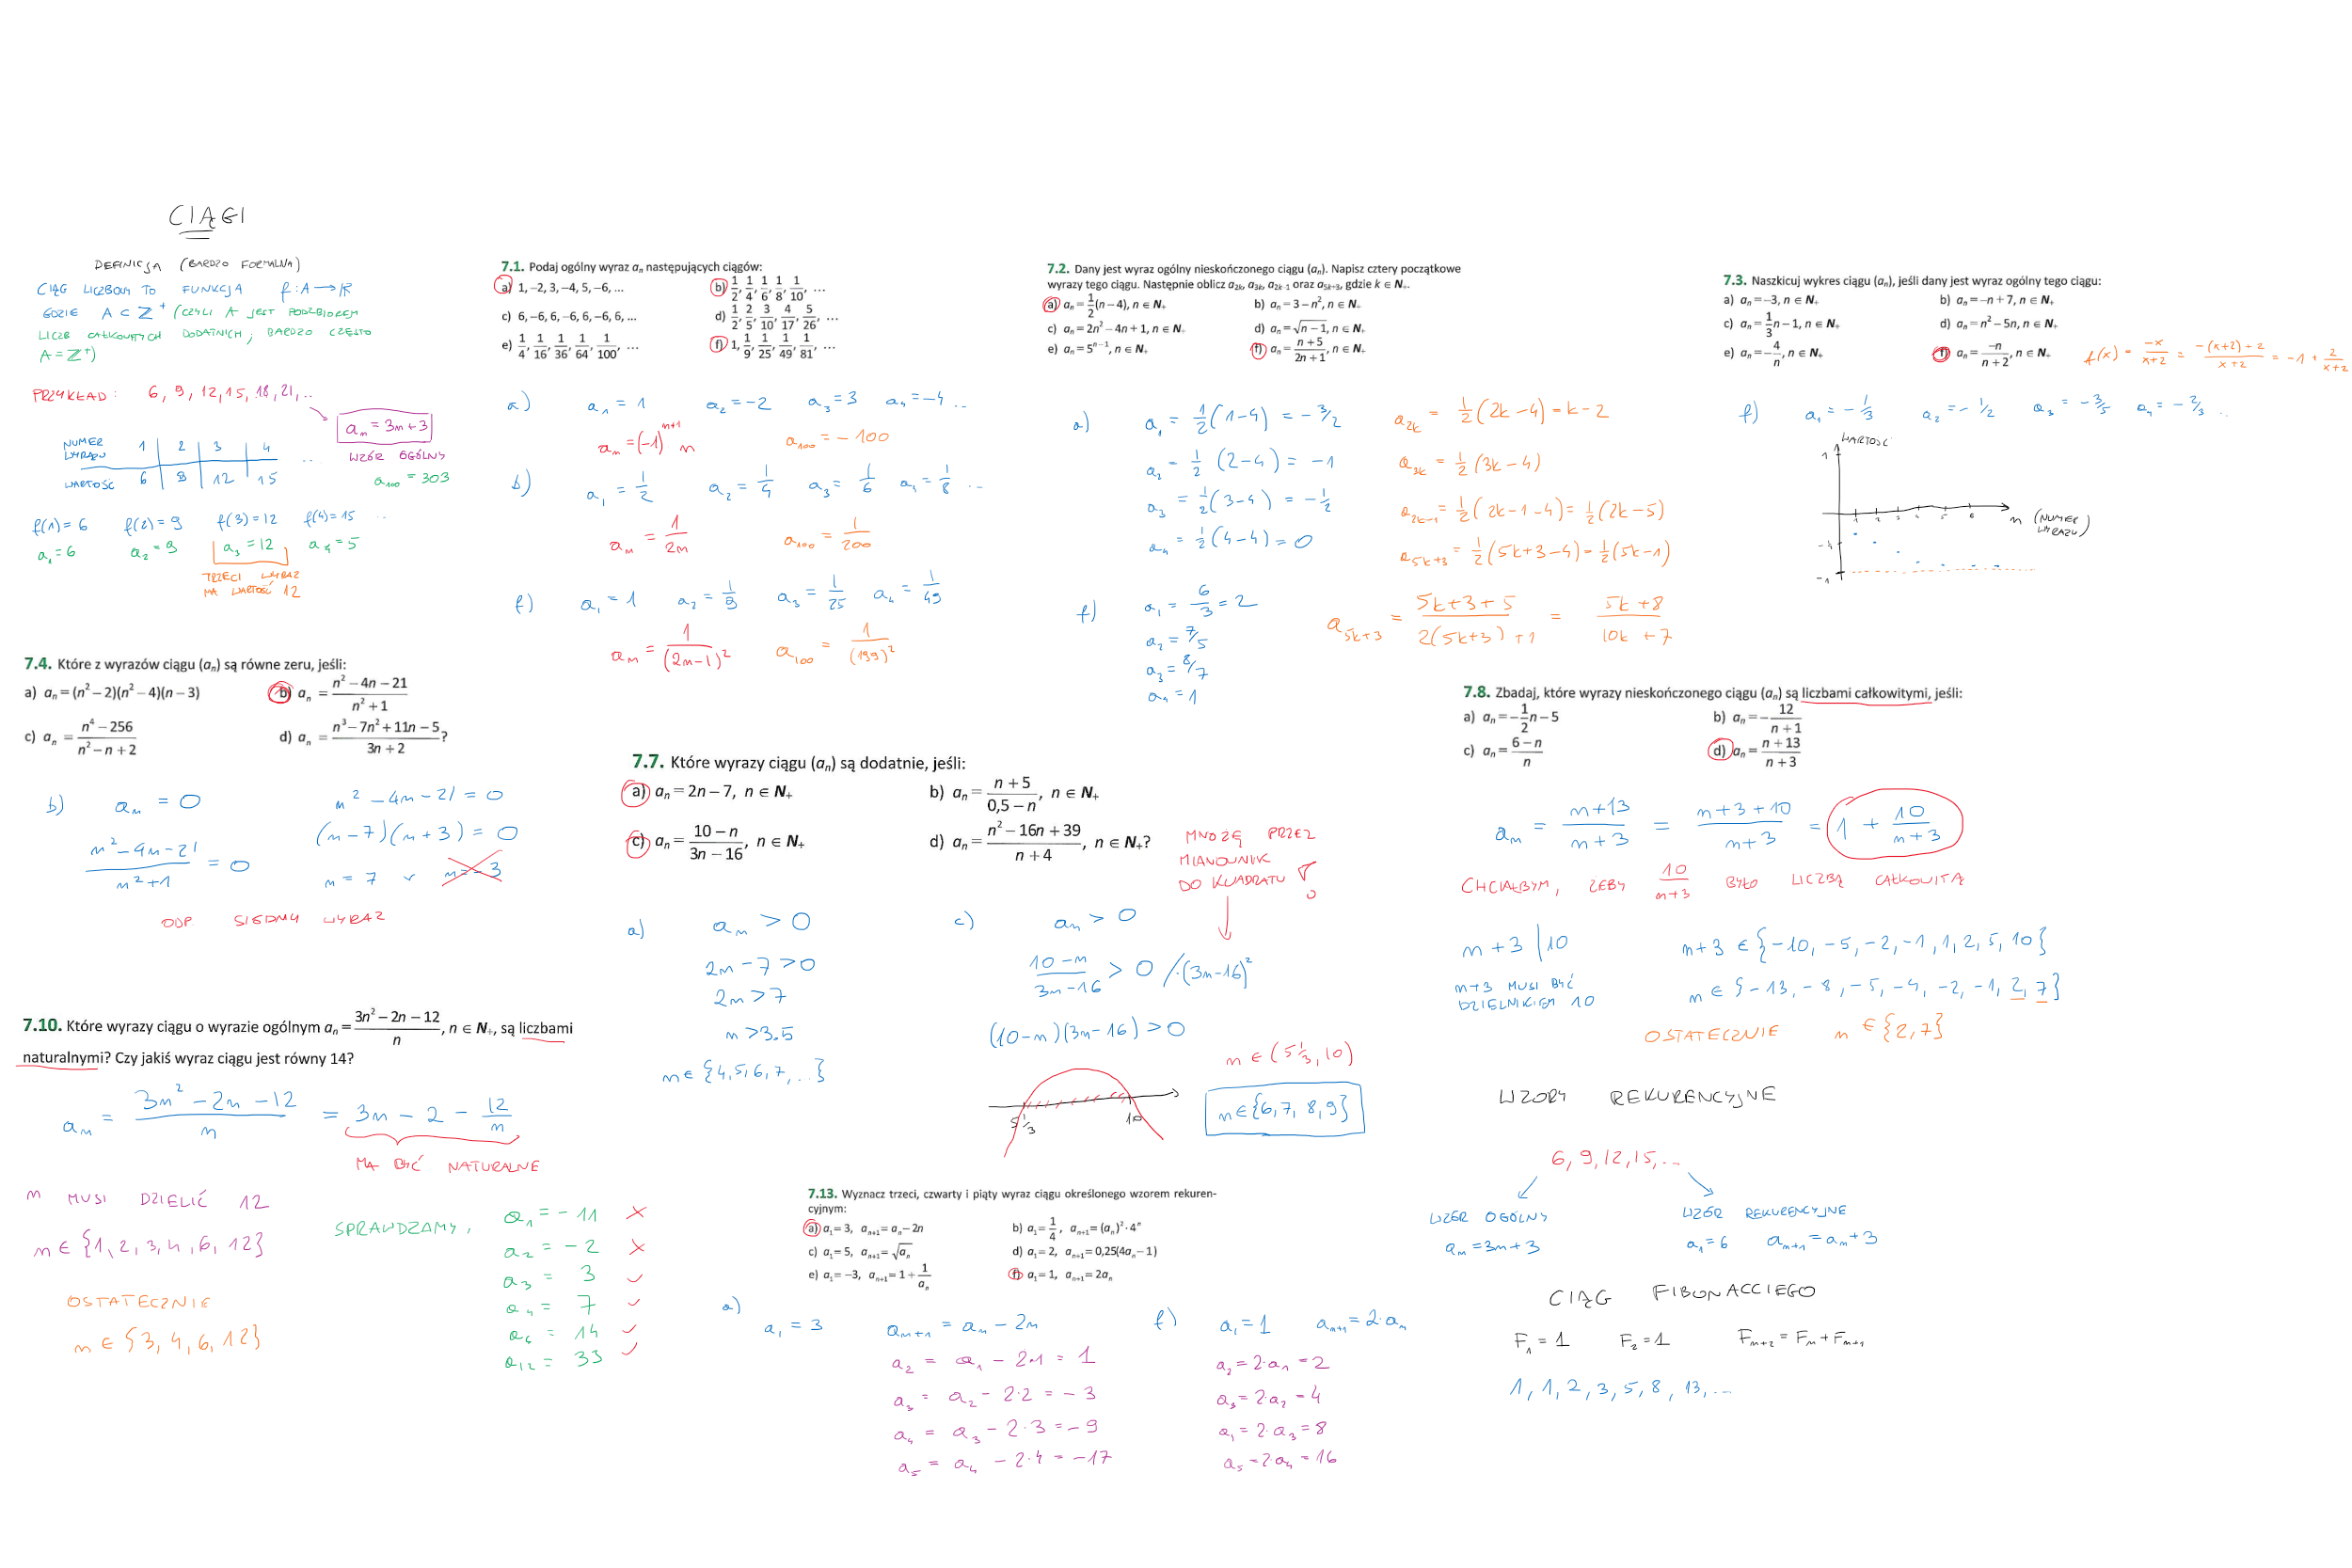 CIĄGI
DEFINICJA (BARDZO FORMALNA)
CIĄG LICZBOWY TO FUNKCJA f: A → ℝ
GDZIE A ⊂ Z⁺ (CZYLI A JEST PODZBIOREM
LICZB CAŁKOWITYCH DODATNICH, BARDZO CZĘSTO
A = Z⁺)
PRZYKŁAD: 6, 9, 12, 15, 18, 21, ..
aₙ = 3n+3
WZÓR OGÓLNY
a₁₀₀ = 303
NUMER WYRAZU 1 2 3 4 ..
WARTOŚĆ 6 9 12 15
f(1)=6 f(2)=9 f(3)=12 f(4)=15 ..
a₁=6 a₂=9 a₃=12 a₄=5
TRZECI WYRAZ
MA WARTOŚĆ 12
7.1. Podaj ogólny wyraz aₙ następujących ciągów:
a) 1, −2, 3, −4, 5, −6, ... b) 1/2, 1/4, 1/6, 1/8, 1/10, ...
c) 6, −6, 6, −6, 6, −6, 6, ... d) 1/2, 2/5, 3/10, 4/17, 5/26, ...
e) 1/4, 1/16, 1/36, 1/64, 1/100, ... f) 1, 1/9, 1/25, 1/49, 1/81, ...
a) a₁ = 1 a₂ = −2 a₃ = 3 a₄ = −4 ..
aₙ = (−1)ⁿ⁺¹ n a₁₀₀ = −100
b) a₁ = 1/2 a₂ = 1/4 a₃ = 1/6 a₄ = 1/8 ..
aₙ = 1/2n a₁₀₀ = 1/200
f) a₁ = 1 a₂ = 1/9 a₃ = 1/25 a₄ = 1/49
aₙ = 1/(2n−1)² a₁₀₀ = 1/(199)²
7.2. Dany jest wyraz ogólny nieskończonego ciągu (aₙ). Napisz cztery początkowe
wyrazy tego ciągu. Następnie oblicz a₂ₖ, a₃ₖ, a₂ₖ₋₁ oraz a₅ₖ₊₃, gdzie k ∈ N₊.
a) aₙ = 1/2(n−4), n ∈ N₊ b) aₙ = 3 − n², n ∈ N₊
c) aₙ = 2n² − 4n + 1, n ∈ N₊ d) aₙ = √(n−1), n ∈ N₊
e) aₙ = 5ⁿ⁻¹, n ∈ N₊ f) aₙ = (n+5)/(2n+1), n ∈ N₊
a) a₁ = 1/2(1−4) = −3/2 a₂ₖ = 1/2(2k−4) = k−2
a₂ = 1/2(2−4) = −1 a₃ₖ = 1/2(3k−4)
a₃ = 1/2(3−4) = −1/2 a₂ₖ₋₁ = 1/2(2k−1−4) = 1/2(2k−5)
a₄ = 1/2(4−4) = 0 a₅ₖ₊₃ = 1/2(5k+3−4) = 1/2(5k−1)
f) a₁ = 6/3 = 2 a₅ₖ₊₃ = (5k+3+5)/(2(5k+3)+1) = (5k+8)/(10k+7)
a₂ = 7/5
a₃ = 8/7
a₄ = 1
7.3. Naszkicuj wykres ciągu (aₙ), jeśli dany jest wyraz ogólny tego ciągu:
a) aₙ = −3, n ∈ N₊ b) aₙ = −n + 7, n ∈ N₊
c) aₙ = 1/3n − 1, n ∈ N₊ d) aₙ = n² − 5n, n ∈ N₊
e) aₙ = −4/n, n ∈ N₊ f) aₙ = −n/(n+2), n ∈ N₊
f(x) = −x/(x+2) = (−(x+2)+2)/(x+2) = −1 + 2/(x+2)
f) a₁ = −1/3 a₂ = −1/2 a₃ = −3/5 a₄ = −2/3 ..
WARTOŚĆ
1
1 2 3 4 5 6
n (NUMER
WYRAZU)
−1
7.4. Które z wyrazów ciągu (aₙ) są równe zeru, jeśli:
a) aₙ = (n² − 2)(n² − 4)(n − 3) b) aₙ = (n² − 4n − 21)/(n² + 1)
c) aₙ = (n⁴ − 256)/(n² − n + 2) d) aₙ = (n³ − 7n² + 11n − 5)/(3n + 2)?
b) aₙ = 0 n² − 4n − 21 = 0
(n²−4n−21)/(n²+1) = 0 (n−7)(n+3) = 0
n = 7 ∨ n = −3
ODP. SIÓDMY WYRAZ
7.7. Które wyrazy ciągu (aₙ) są dodatnie, jeśli:
a) aₙ = 2n − 7, n ∈ N₊ b) aₙ = (n + 5)/(0,5 − n), n ∈ N₊
c) aₙ = (10 − n)/(3n − 16), n ∈ N₊ d) aₙ = (n² − 16n + 39)/(n + 4), n ∈ N₊?
MNOŻĘ PRZEZ
MIANOWNIK
DO KWADRATU !
a) aₙ > 0
2n − 7 > 0
2n > 7
n > 3.5
n ∈ {4,5,6,7,...}
c) aₙ > 0
(10−n)/(3n−16) > 0 /·(3n−16)²
(10−n)(3n−16) > 0
n ∈ (5 1/3, 10)
5 1/3 10
n ∈ {6,7,8,9}
7.8. Zbadaj, które wyrazy nieskończonego ciągu (aₙ) są liczbami całkowitymi, jeśli:
a) aₙ = −1/2n − 5 b) aₙ = −12/(n+1)
c) aₙ = (6−n)/n d) aₙ = (n+13)/(n+3)
aₙ = (n+13)/(n+3) = (n+3+10)/(n+3) = 1 + 10/(n+3)
CHCIAŁBYM, ŻEBY 10/(n+3) BYŁO LICZBĄ CAŁKOWITĄ
n+3 | 10 n+3 ∈ {−10, −5, −2, −1, 1, 2, 5, 10}
n+3 MUSI BYĆ
DZIELNIKIEM 10
n ∈ {−13, −8, −5, −4, −2, −1, 2, 7}
OSTATECZNIE n ∈ {2,7}
7.10. Które wyrazy ciągu o wyrazie ogólnym aₙ = (3n² − 2n − 12)/n, n ∈ N₊, są liczbami
naturalnymi? Czy jakiś wyraz ciągu jest równy 14?
aₙ = (3n² − 2n − 12)/n = 3n − 2 − 12/n
MA BYĆ NATURALNE
n MUSI DZIELIĆ 12
n ∈ {1, 2, 3, 4, 6, 12}
OSTATECZNIE
n ∈ {3, 4, 6, 12}
SPRAWDZAMY,
a₁ = −11 ×
a₂ = −2 ×
a₃ = 3 ✓
a₄ = 7 ✓
a₆ = 14 ✓
a₁₂ = 33 ✓
7.13. Wyznacz trzeci, czwarty i piąty wyraz ciągu określonego wzorem rekuren-
cyjnym:
a) a₁ = 3, aₙ₊₁ = aₙ − 2n b) a₁ = 1/4, aₙ₊₁ = (aₙ)² · 4ⁿ
c) a₁ = 5, aₙ₊₁ = √aₙ d) a₁ = 2, aₙ₊₁ = 0,25(4aₙ − 1)
e) a₁ = −3, aₙ₊₁ = 1 + 1/aₙ f) a₁ = 1, aₙ₊₁ = 2aₙ
a) a₁ = 3 aₙ₊₁ = aₙ − 2n
a₂ = a₁ − 2·1 = 1
a₃ = a₂ − 2·2 = −3
a₄ = a₃ − 2·3 = −9
a₅ = a₄ − 2·4 = −17
f) a₁ = 1 aₙ₊₁ = 2·aₙ
a₂ = 2·a₁ = 2
a₃ = 2·a₂ = 4
a₄ = 2·a₃ = 8
a₅ = 2·a₄ = 16
WZORY REKURENCYJNE
6, 9, 12, 15, ...
WZÓR OGÓLNY
aₙ = 3n+3
WZÓR REKURENCYJNE
a₁ = 6 aₙ₊₁ = aₙ + 3
CIĄG FIBONACCIEGO
F₁ = 1 F₂ = 1 Fₙ₊₂ = Fₙ + Fₙ₊₁
1, 1, 2, 3, 5, 8, 13, ...